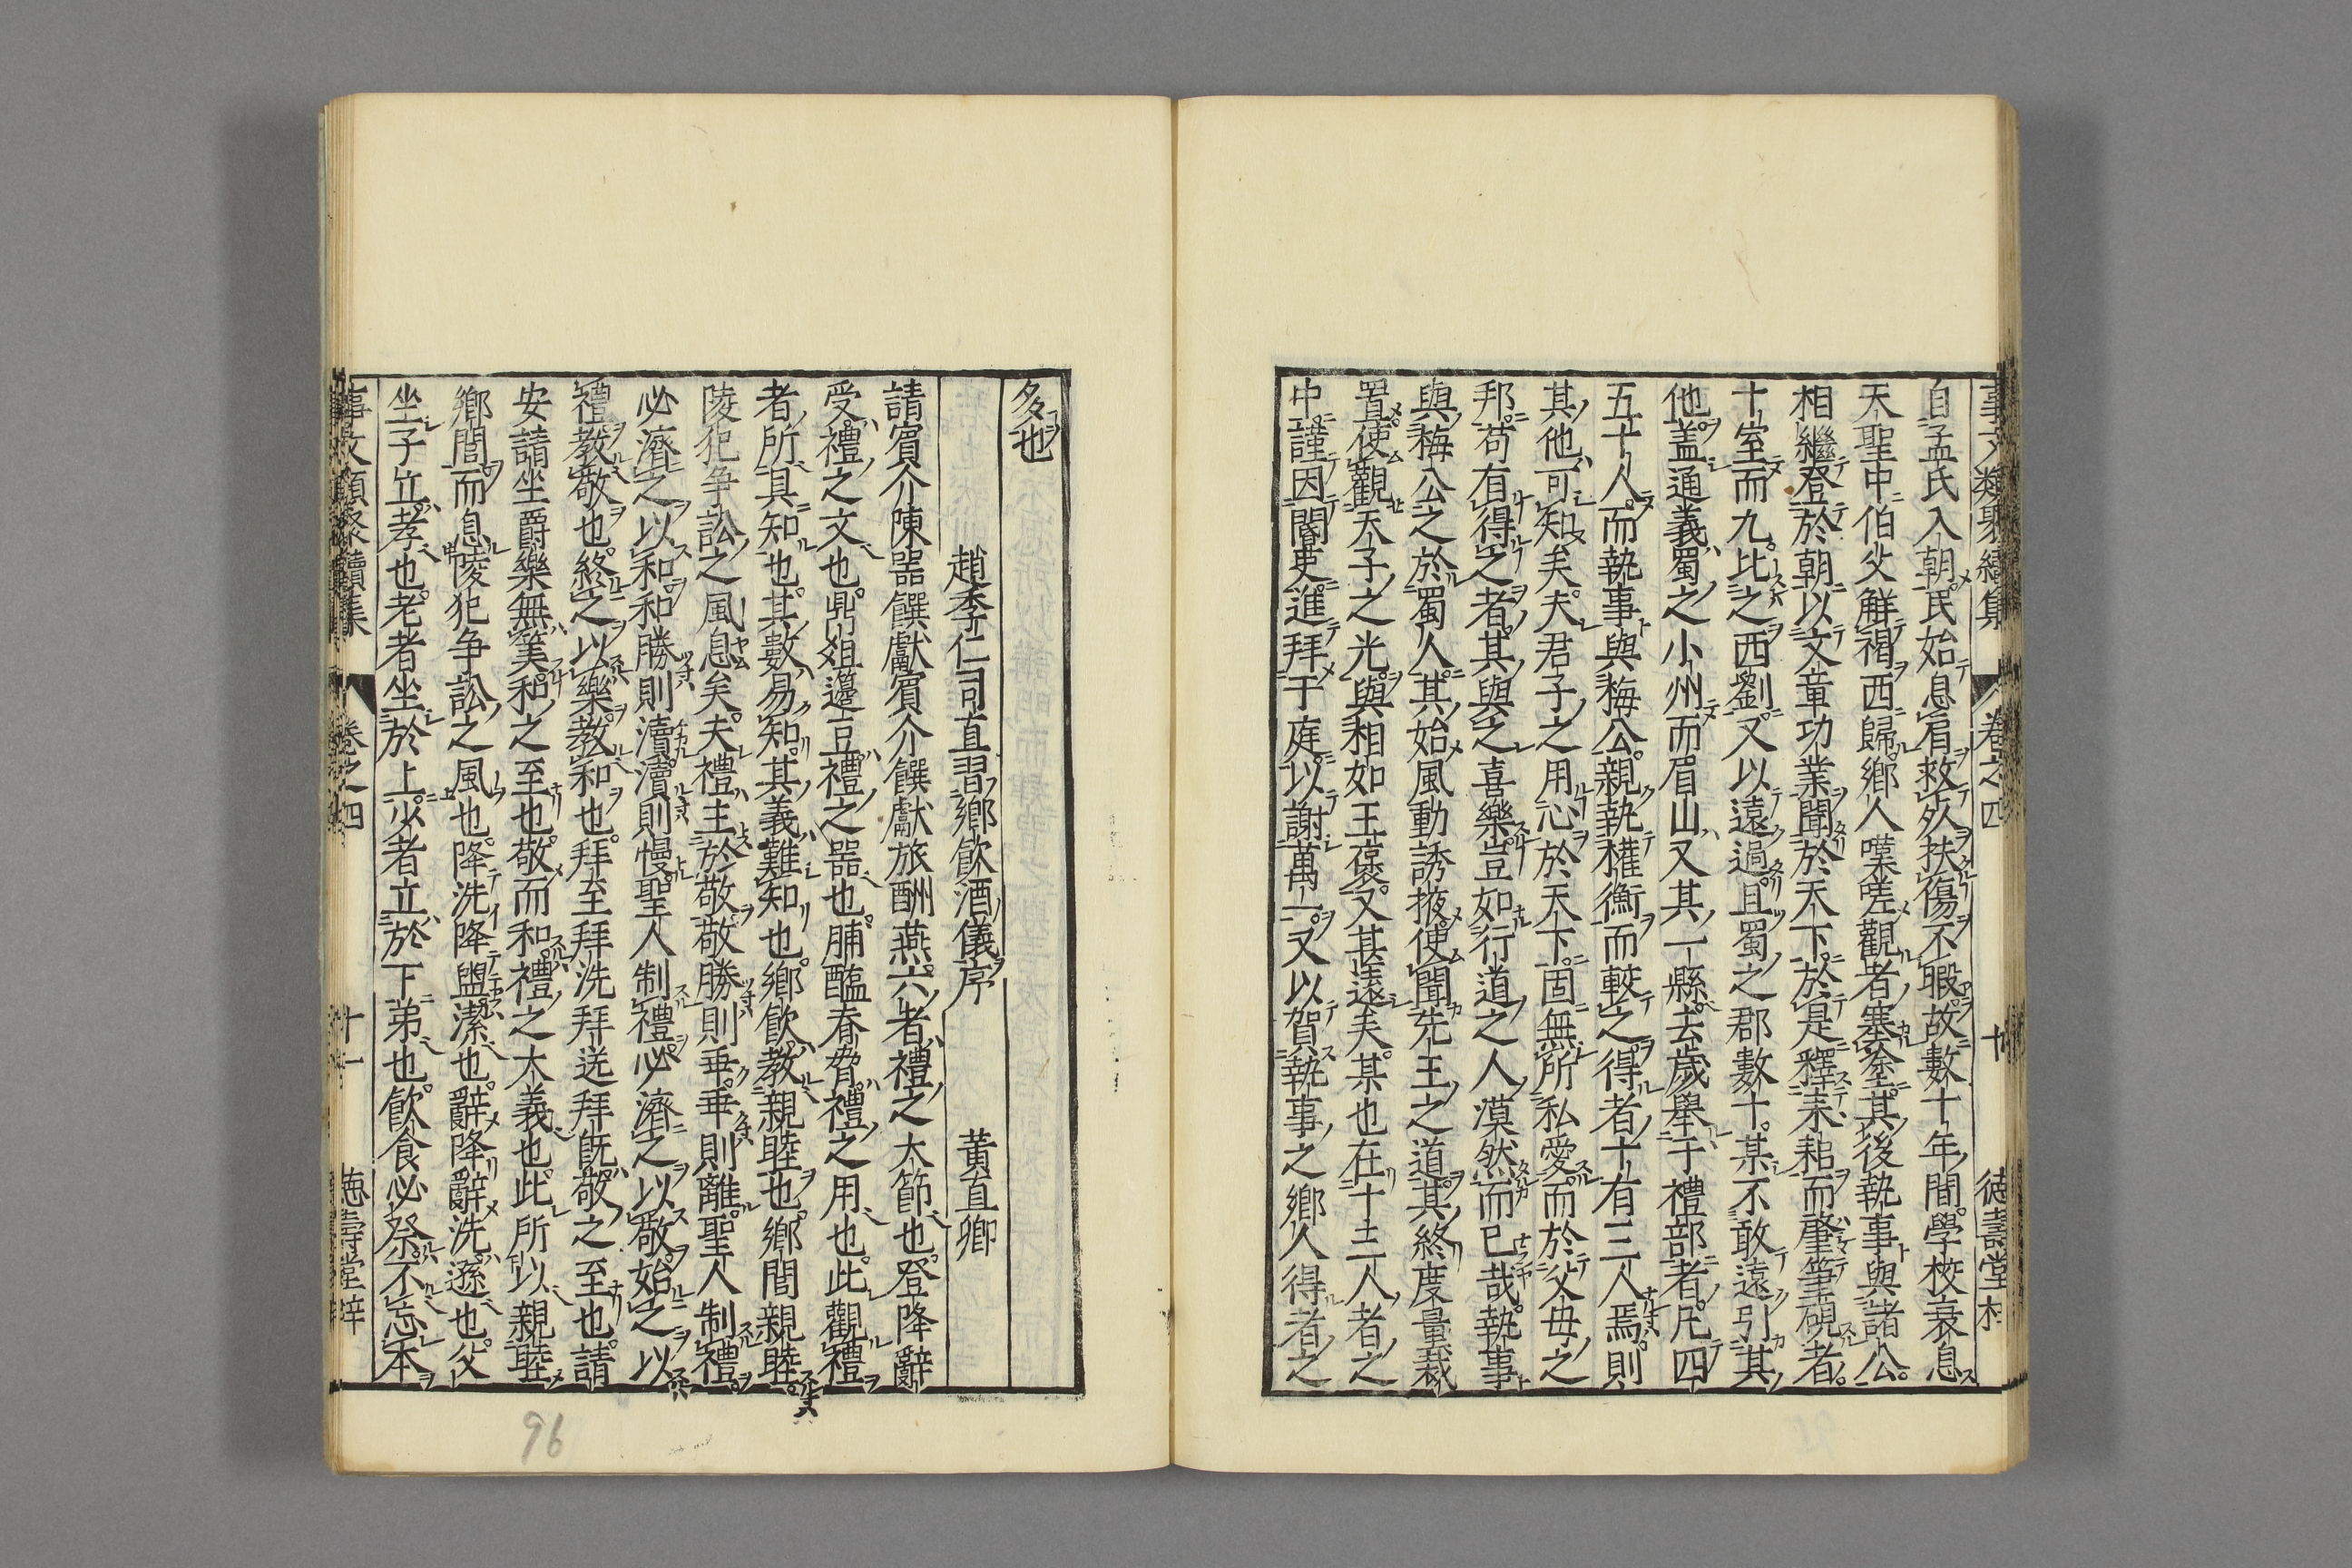 事文類聚續集 卷之四 十 德壽堂梓
自孟氏入朝民始息肩救死扶傷不暇故數十年間學校衰息
天聖中伯父觧褐西歸鄉人嘆嗟觀者塞塗其後執事與諸公
相繼登於朝以文章功業聞於天下於是釋耒耜而肇筆硯者
十室而九比之西劉又以遠過且蜀之郡數十某不敢遠引其
他盖通義蜀之小州而眉山又其一縣去歲舉于禮部者凡四
五十人而執事與梅公親執權衡而較之得者十有三人焉則
其他可知矣夫君子之用心於天下固無所私愛而於父母之
邦苟有得之者其與之喜樂豈如行道之人漠然而已哉執事
與梅公之於蜀人其始風動誘掖使聞先王之道其終度量裁
置使觀天子之光與相如王褒又甚遠矣某也在十三人者之
中謹因閽吏進拜于庭以謝萬一又以賀執事之鄉人得者之
多也
趙季仁司直習鄉飲酒儀序 黃直卿
請賓介陳器饌獻賓介饌獻旅酬燕六者禮之大節也登降辭
受禮之文也鼎俎籩豆禮之器也脯醢脊脅禮之用也此觀禮
者所具知也其數易知其義難知也鄉飲教親睦也鄉閭親睦
陵犯争訟之風息矣夫禮主於敬敬勝則乖乖則離聖人制禮
必濟之以和和勝則瀆瀆則慢聖人制禮必濟之以敬始之以
禮教敬也終之以樂教和也拜至拜洗拜送拜旣敬之至也請
安請坐爵樂無筭和之至也敬而和禮之大義也此所以親睦
鄉閭而息陵犯争訟之風也降洗降盥潔也辭降辭洗遜也父
坐子立孝也老者坐於上少者立於下弟也飲食必祭不忘本
事文類聚續集 卷之四 十一 德壽堂梓
96